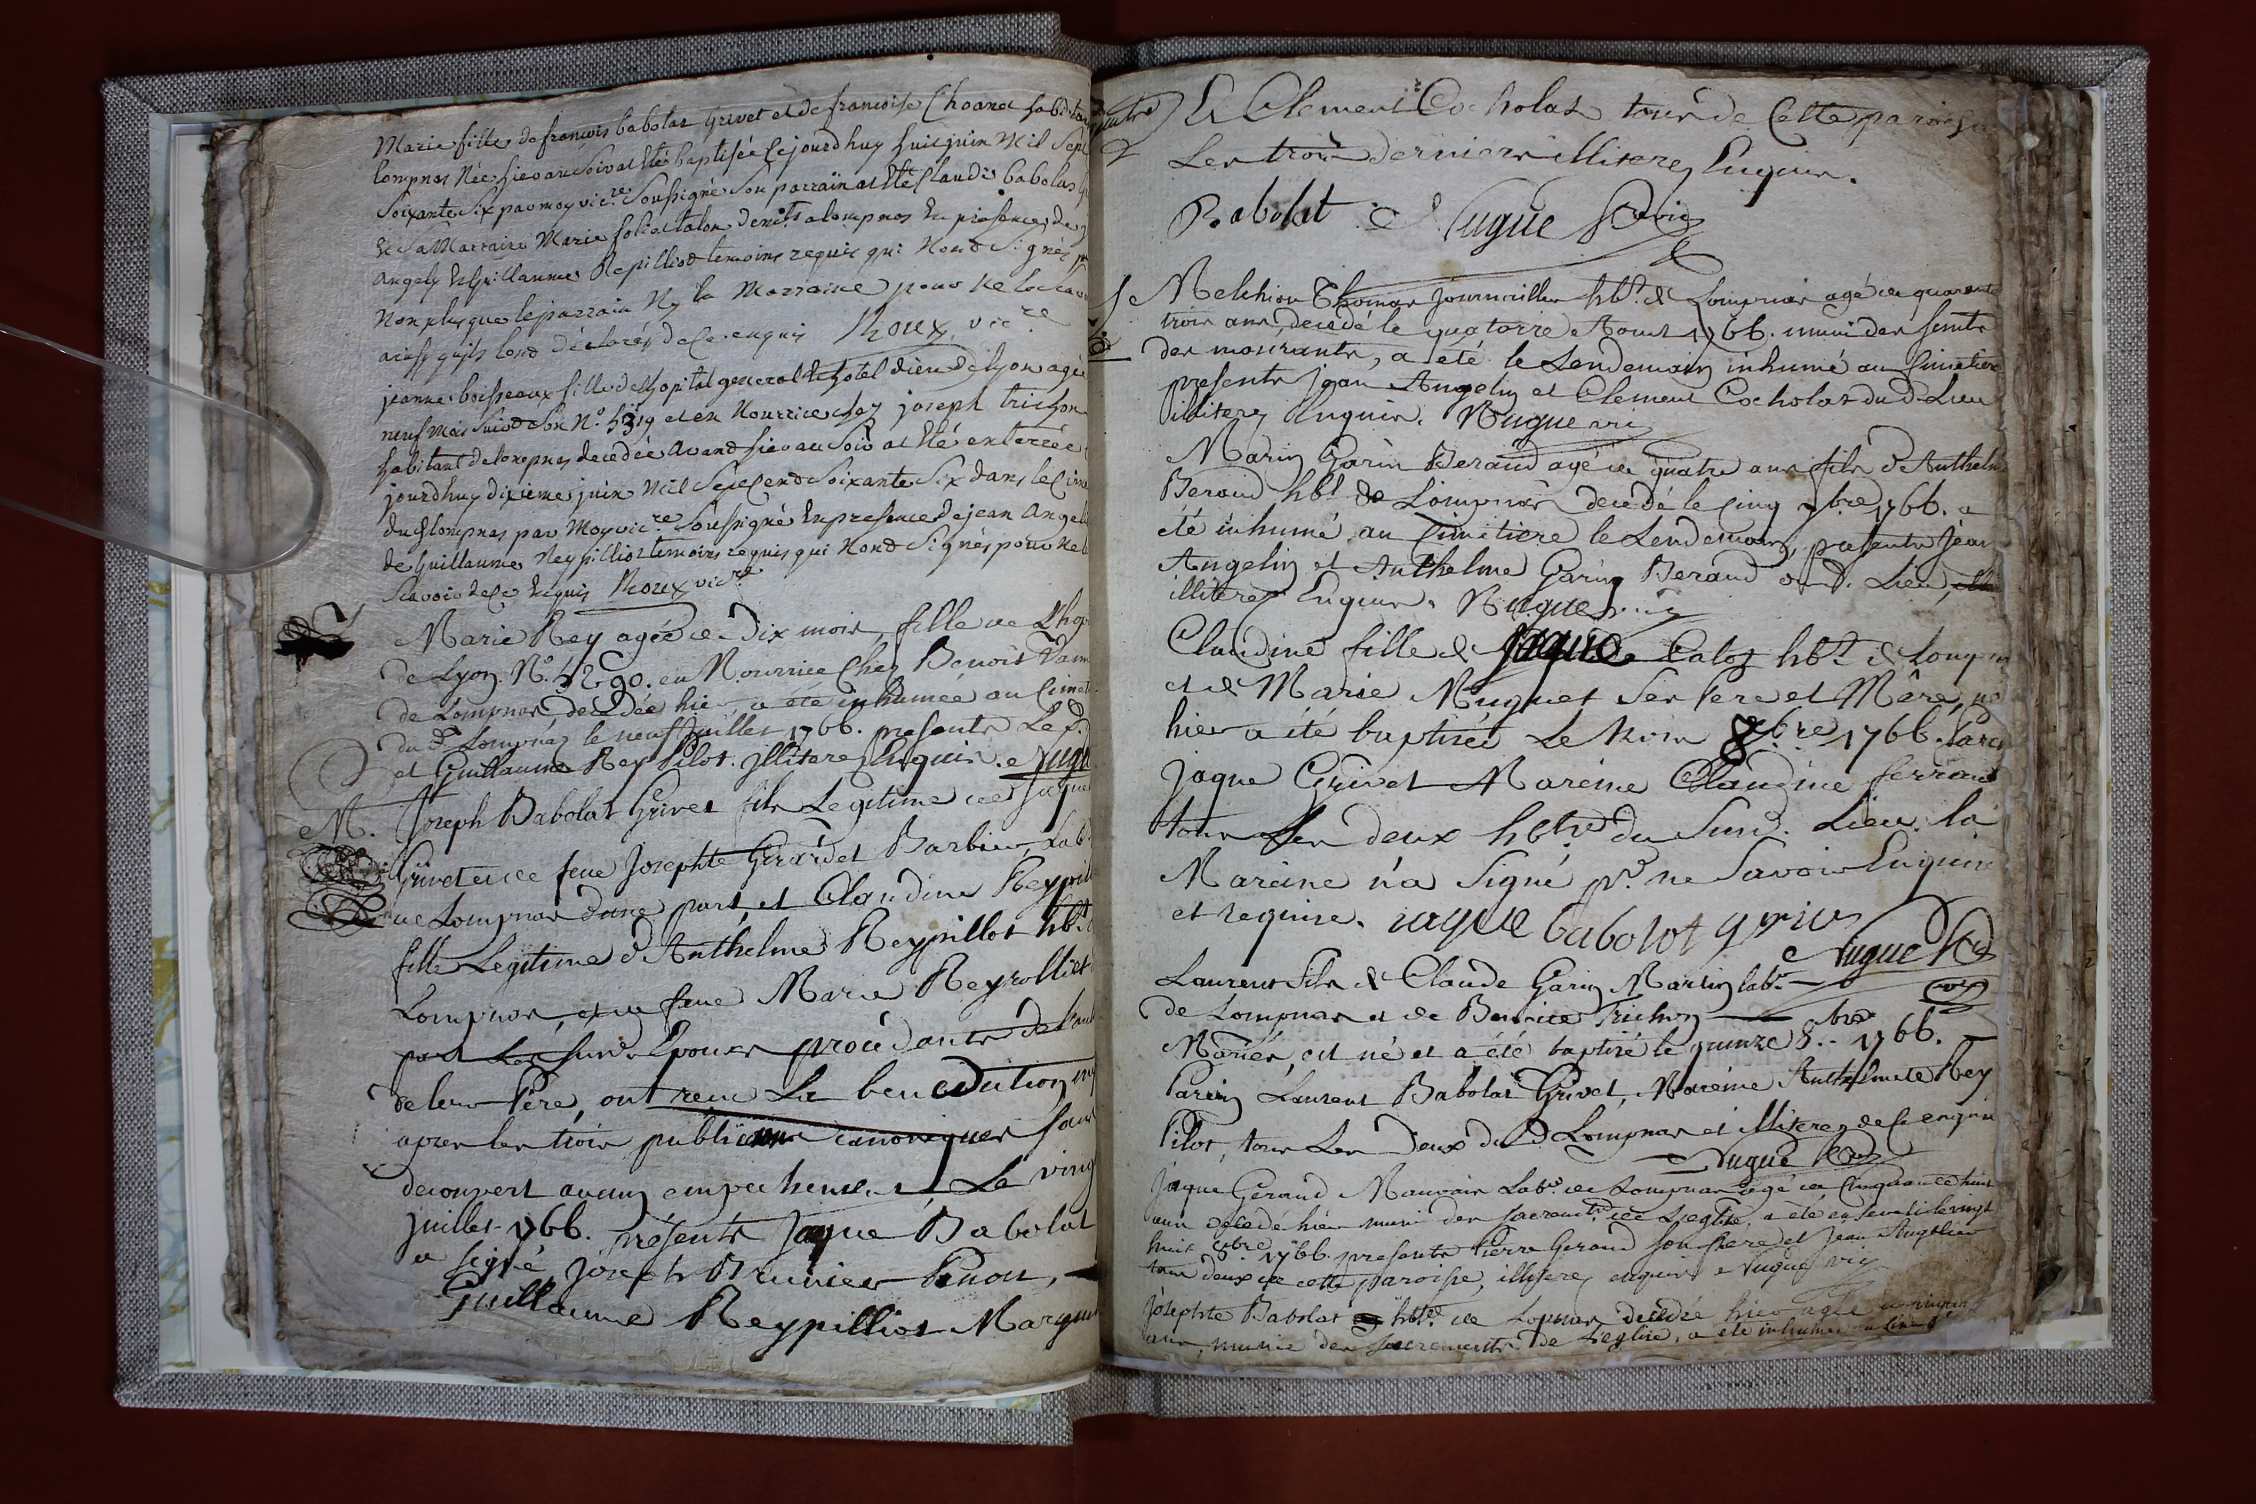 Marie fille de francois babolat Grivet et de francoise Choanet habita
lompnas Née hier au Soir at Eté baptisée Cejourdhuy huit juin Mil Sept
Soixante Six par moy vic.re Soussigné Son parrain at Eté Claude babolat
Et Sa Marraine Marie Et En presence de
angely Et Guillaume Repilliod temoins requis qui Nond Signés
Non plus que le parrain Ny la Marraine pour Ne le scavoir
ainsy quils lont déclarés de Ce enquis Roux vic.re
jeanne boisseaux fille de lhopital general Et hotel dieu de lyon agée
neuf Mois Suivt Son N.o 5319 et en Nourrice chez joseph trichon
habitant de lompnas decedée avand hier au Soir at Eté enterrée
jourdhuy dixieme juin Mil Sept Cend Soixante Six dans le Cime
dud lompnas par Moy vic.re Soussigné En presence de jean angel
de Guillaume Reypilliot temoins requis qui Nond Signés pour Ne l
Scavoir de Ce Enquis Roux vic.re
Marie Rey agée de Dix mois, fille de L'hop
de Lyon N.o 5290. en Nourrice Chez Benoit
de Lompnas, decedée hier, a été inhumée au Cimet
du d. Lompnaz le neuf juillet 1766. presents Le d.
et Guillaume Rey Pilot. jlliterez Enquis. Nugu
M. Joseph Babolat Grivet fils Legitime de Jaque
Grivet et de feue Josephte Girardet Barbier, Lab
de Lompnas d'une part et Claudine Reypill
fille Legitime d'Anthelme Reypillot hbt
Lompnas, et de feue Marie Reyrolliet
part Les susd. Epoux procédants de l'au
de leur Pére, ont recu La benediction
apres les trois publications canoniques sans
decouvert aucun empechement Le ving
juillet 1766. Présents Jaque Babolat
a signé, joseph Brunier Penon,
Guillaume Reypilliot Marque
Et Clement Cocholat tous de Cette paroisse
Les trois derniers illiterez Enquis.
Babolat Nugue vic
Melchior Thomas journaillier hbt. de Lompnas agé de quarante
trois ans, decedé le quatorze Aoust 1766. muni des
des mourants, a eté le Lendemain inhumé au Cimetiere
presents jean Angelin et Clement Cocholat du d. Lieu
illiterez Enquis. Nugue vic
Marin Garin Beraud agé de quatre ans fils d'Anthelme
Beraud hbt de Lompnas decedé le Cinq 7bre 1766. a
été inhumé au Cimetiere le Lendemain, presents Jean
Angelin et Anthelme Garin Beraud du d. Lieu,
illiterez Enquis. Nugue vic
Claudine fille de jaque Calot hbt. de Lompn
et de Marie Nuguet Ses Pere et Mére, né
hier a été baptisée Le trois 8bre 1766. Parein
Jaque Grivet Mareine Claudine ferrand
tous Les deux hbts du Susd. Lieu. la
Mareine n'a Signé pr. ne Savoir Enquise
et requise. jaque babolot grive
Nugue
Laurent fils de Claude Garin Martin labr.
de Lompnas et de Benoite Trichon vic
Mariés, est né et a été baptisé le quinze 8bre 1766.
Parein Laurent Babolat Grivet, Mareine Anthelmete Rey
Pilot, tous Les Deux du d. Lompnas et illiterez de Ce enquis
Nugue
Jaque Geraud Mauvais Labr. de Lompnas agé de Cinquante huit
ans decedé hier muni des sacrements de L'eglise, a été enseveli le vingt
huit 1766. presents Pierre Geraud son frere et Jean Angelin
tous deux de cette paroisse, illiterez enquis Nugue vic
Josephte Babolat hbte. de Lopnas decedée hier agée de
ans, munie des sacrements de L'eglise, a été inhumée au Cim